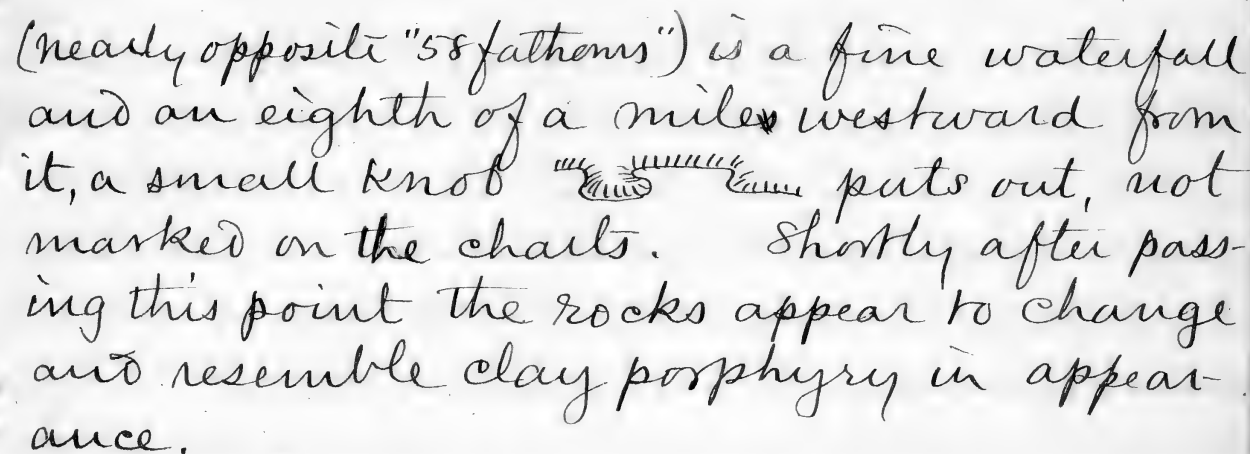 (nearly opposite "58 fathoms") is a fine waterfall
and an eighth of a mile westward from
it, a small knob puts out, not
marked on the charts. Shortly after pass-
ing this point the rocks appear to change
and resemble clay porphyry in appear-
ance.